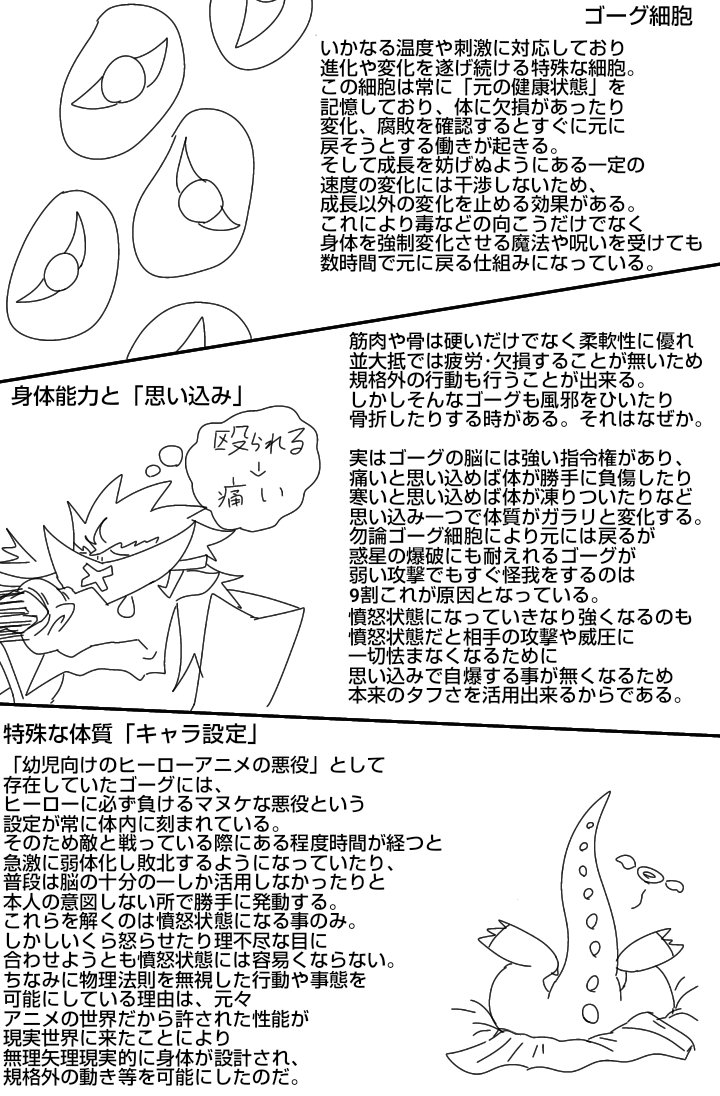 ゴーグ細胞
いかなる温度や刺激に対応しており
進化や変化を遂げ続ける特殊な細胞。
この細胞は常に「元の健康状態」を
記憶しており、体に欠損があったり
変化、腐敗を確認するとすぐに元に
戻そうとする働きが起きる。
そして成長を妨げぬようにある一定の
速度の変化には干渉しないため、
成長以外の変化を止める効果がある。
これにより毒などの向こうだけでなく
身体を強制変化させる魔法や呪いを受けても
数時間で元に戻る仕組みになっている。
身体能力と「思い込み」
殴られる
↓
痛い
筋肉や骨は硬いだけでなく柔軟性に優れ
並大抵では疲労・欠損することが無いため
規格外の行動も行うことが出来る。
しかしそんなゴーグも風邪をひいたり
骨折したりする時がある。それはなぜか。
実はゴーグの脳には強い指令権があり、
痛いと思い込めば体が勝手に負傷したり
寒いと思い込めば体が凍りついたりなど
思い込み一つで体質がガラリと変化する。
勿論ゴーグ細胞により元には戻るが
惑星の爆破にも耐えれるゴーグが
弱い攻撃でもすぐ怪我をするのは
9割これが原因となっている。
憤怒状態になっていきなり強くなるのも
憤怒状態だと相手の攻撃や威圧に
一切怯まなくなるために
思い込みで自爆する事が無くなるため
本来のタフさを活用出来るからである。
特殊な体質「キャラ設定」
「幼児向けのヒーローアニメの悪役」として
存在していたゴーグには、
ヒーローに必ず負けるマヌケな悪役という
設定が常に体内に刻まれている。
そのため敵と戦っている際にある程度時間が経つと
急激に弱体化し敗北するようになっていたり、
普段は脳の十分の一しか活用しなかったりと
本人の意図しない所で勝手に発動する。
これらを解くのは憤怒状態になる事のみ。
しかしいくら怒らせたり理不尽な目に
合わせようとも憤怒状態には容易くならない。
ちなみに物理法則を無視した行動や事態を
可能にしている理由は、元々
アニメの世界だから許された性能が
現実世界に来たことにより
無理矢理現実的に身体が設計され、
規格外の動き等を可能にしたのだ。